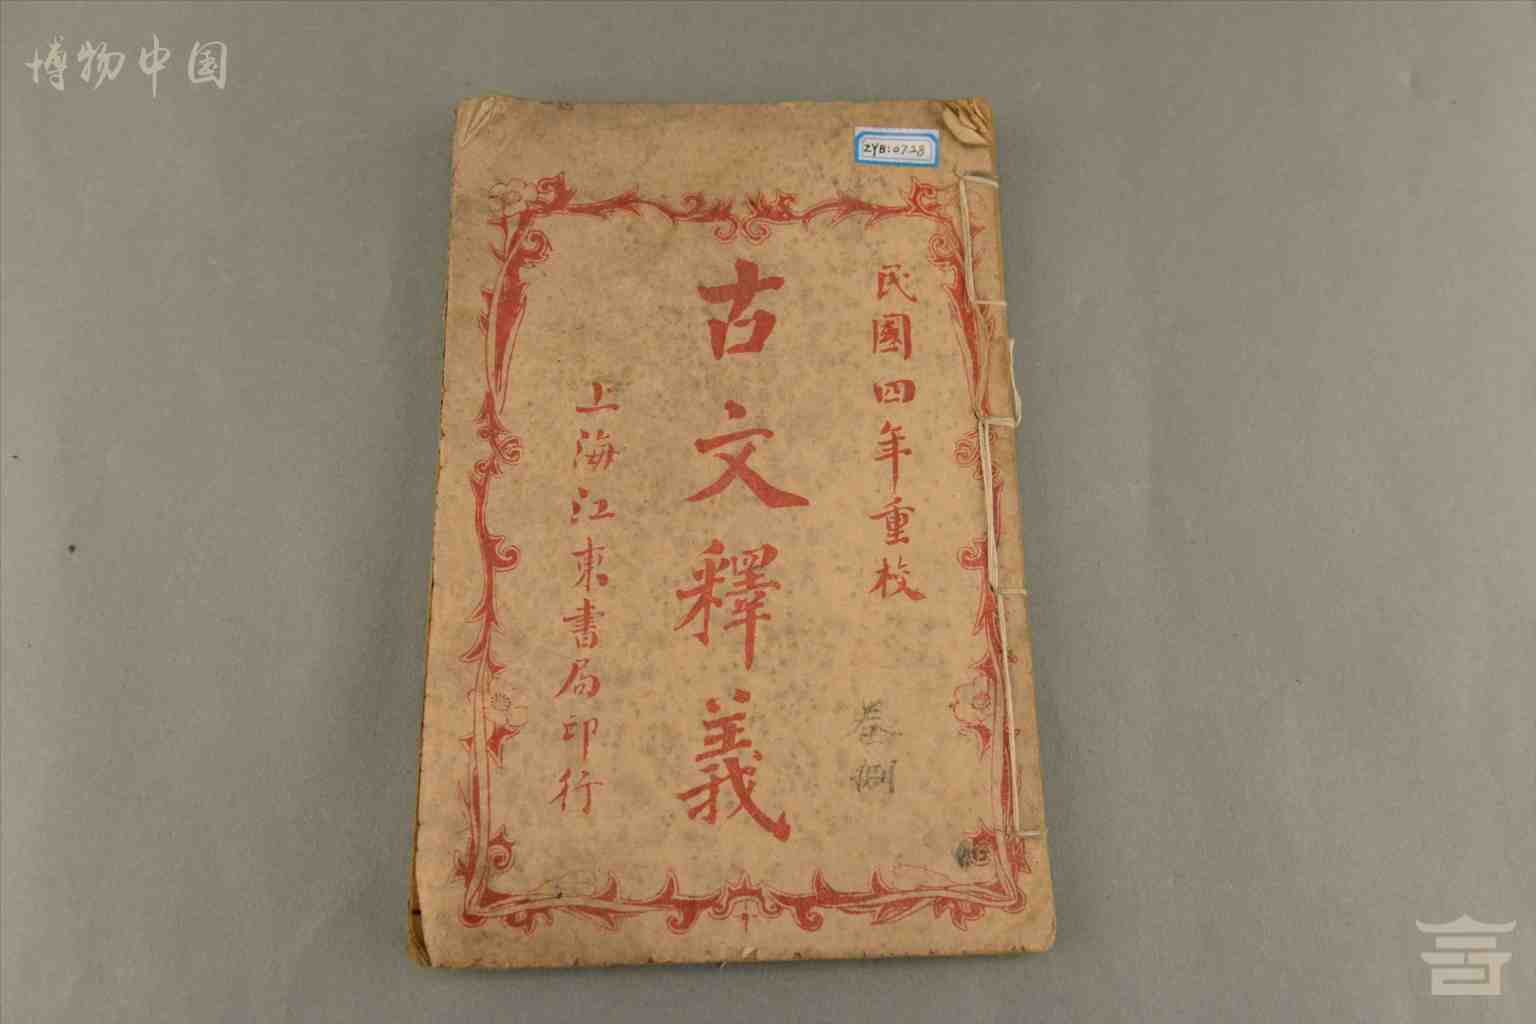 博物中国
ZYB:0728
民國四年重校
古文釋義
上海江東書局印行
卷捌